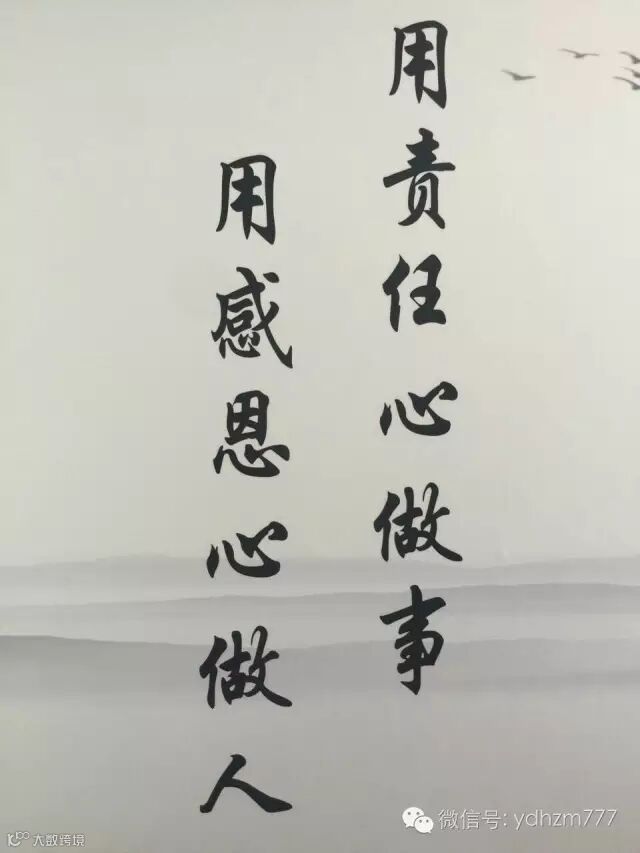 用责任心做事
用感恩心做人
微信号: ydhzm777
大数跨境